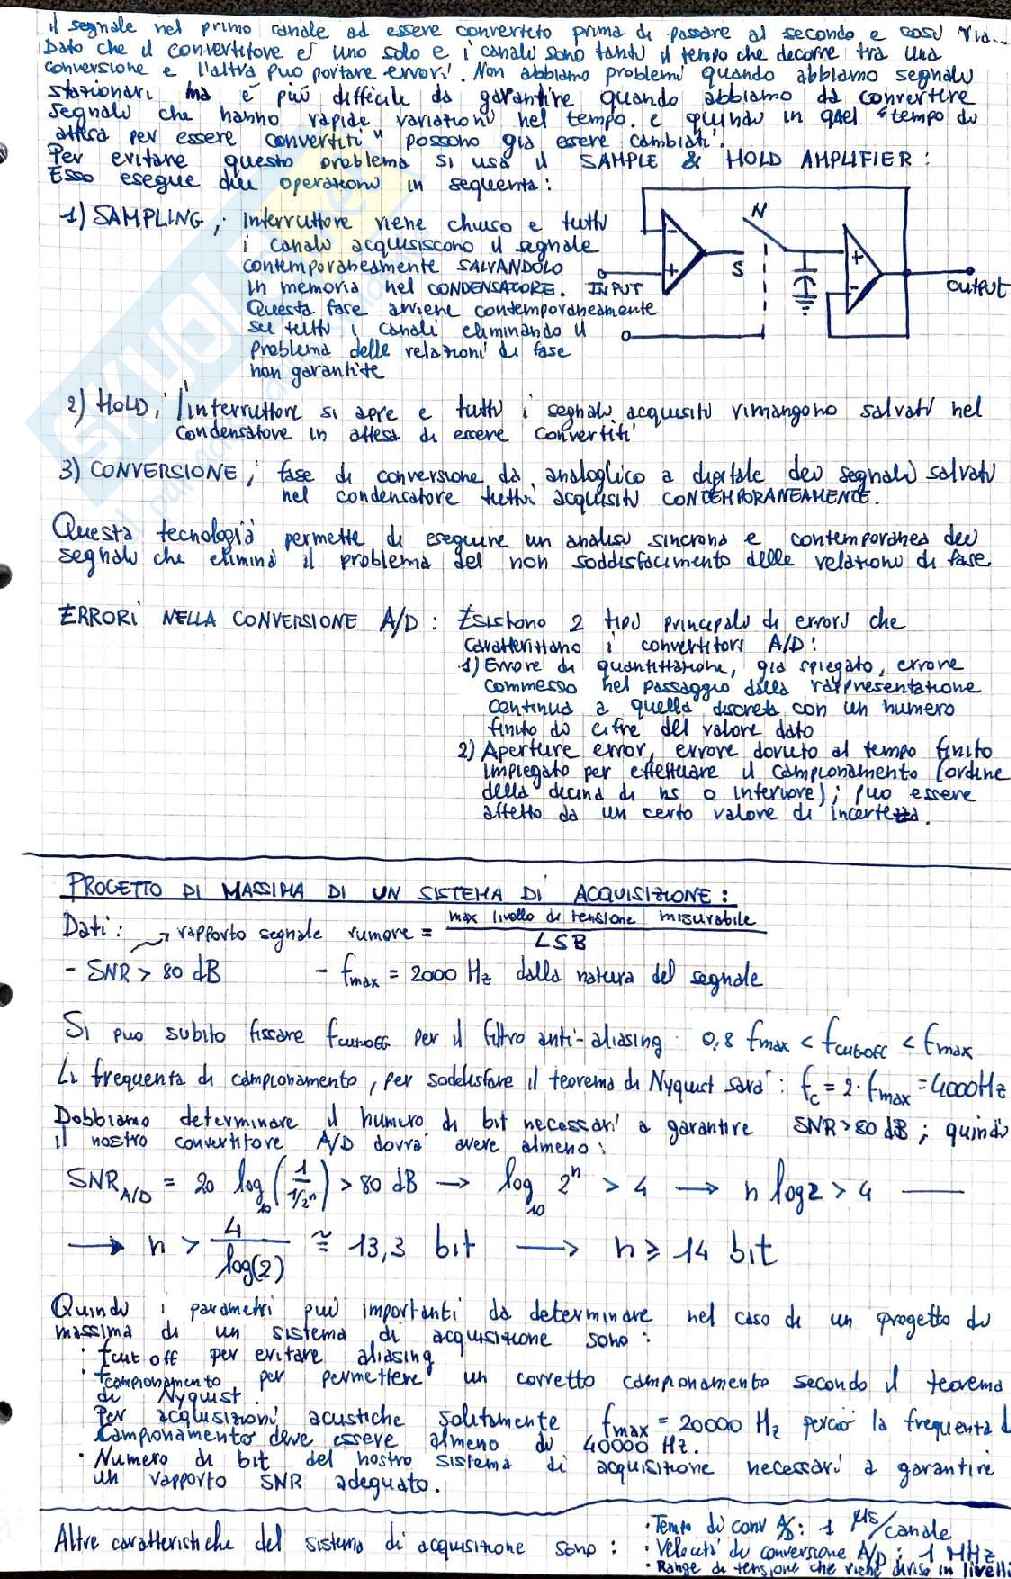 il segnale nel primo canale ad essere convertito prima di passare al secondo e così via...
Dato che il convertitore è uno solo e i canali sono tanti il tempo che decorre tra una
conversione e l'altra può portare errori. Non abbiamo problemi quando abbiamo segnali
stazionari ma è più difficile da garantire quando abbiamo da convertire
segnali che hanno rapide variazioni nel tempo e quindi in quel "tempo di
attesa per essere convertiti" possono già essere cambiati.
Per evitare questo problema si usa il SAMPLE & HOLD AMPLIFIER:
Esso esegue due operazioni in sequenza:
1) SAMPLING; interruttore viene chiuso e tutti
i canali acquisiscono il segnale
contemporaneamente SALVANDOLO
in memoria nel CONDENSATORE.
Questa fase avviene contemporaneamente
su tutti i canali eliminando il
problema delle relazioni di fase
non garantite
- + N S INPUT + - OUTPUT
2) HOLD; l'interruttore si apre e tutti i segnali acquisiti rimangono salvati nel
condensatore in attesa di essere convertiti
3) CONVERSIONE; fase di conversione da analogico a digitale dei segnali salvati
nel condensatore tutti acquisiti CONTEMPORANEAMENTE.
Questa tecnologia permette di eseguire un analisi sincrona e contemporanea dei
segnali che elimina il problema del non soddisfacimento delle relazioni di fase
ERRORI NELLA CONVERSIONE A/D: Esistono 2 tipi principali di errori che
caratterizzano i convertitori A/D:
1) Errore di quantizzazione, già spiegato, errore
commesso nel passaggio dalla rappresentazione
continua a quella discreta con un numero
finito di cifre del valore dato
2) Aperture error, errore dovuto al tempo finito
impiegato per effettuare il campionamento (ordine
della decina di ns o inferiore); può essere
affetto da un certo valore di incertezza.
PROGETTO DI MASSIMA DI UN SISTEMA DI ACQUISIZIONE:
Dati: → rapporto segnale rumore = max livello di tensione misurabile / LSB
- SNR > 80 dB - fmax = 2000 Hz dalla natura del segnale
Si può subito fissare fcutoff per il filtro anti-aliasing: 0,8 fmax < fcutoff < fmax
La frequenza di campionamento, per soddisfare il teorema di Nyquist sarà: fc = 2·fmax = 4000Hz
Dobbiamo determinare il numero di bit necessari a garantire SNR > 80 dB; quindi
il nostro convertitore A/D dovrà avere almeno:
SNR A/D = 20 log10 (1 / 1/2ⁿ) > 80 dB → log10 2ⁿ > 4 → n log2 > 4 —
→ n > 4 / log(2) ≅ 13,3 bit → n ≥ 14 bit
Quindi i parametri più importanti da determinare nel caso di un progetto di
massima di un sistema di acquisizione sono:
· fcut off per evitare aliasing
· fcampionamento per permettere un corretto campionamento secondo il teorema
di Nyquist.
Per acquisizioni acustiche solitamente fmax = 20000 Hz perciò la frequenza d
campionamento deve essere almeno di 40000 Hz.
· Numero di bit del nostro sistema di acquisizione necessari a garantire
un rapporto SNR adeguato.
Altre caratteristiche del sistema di acquisizione sono: · Tempo di conv A/D: 1 μs/canale
· Velocità di conversione A/D: 1 MHz
· Range di tensione che viene diviso in livelli